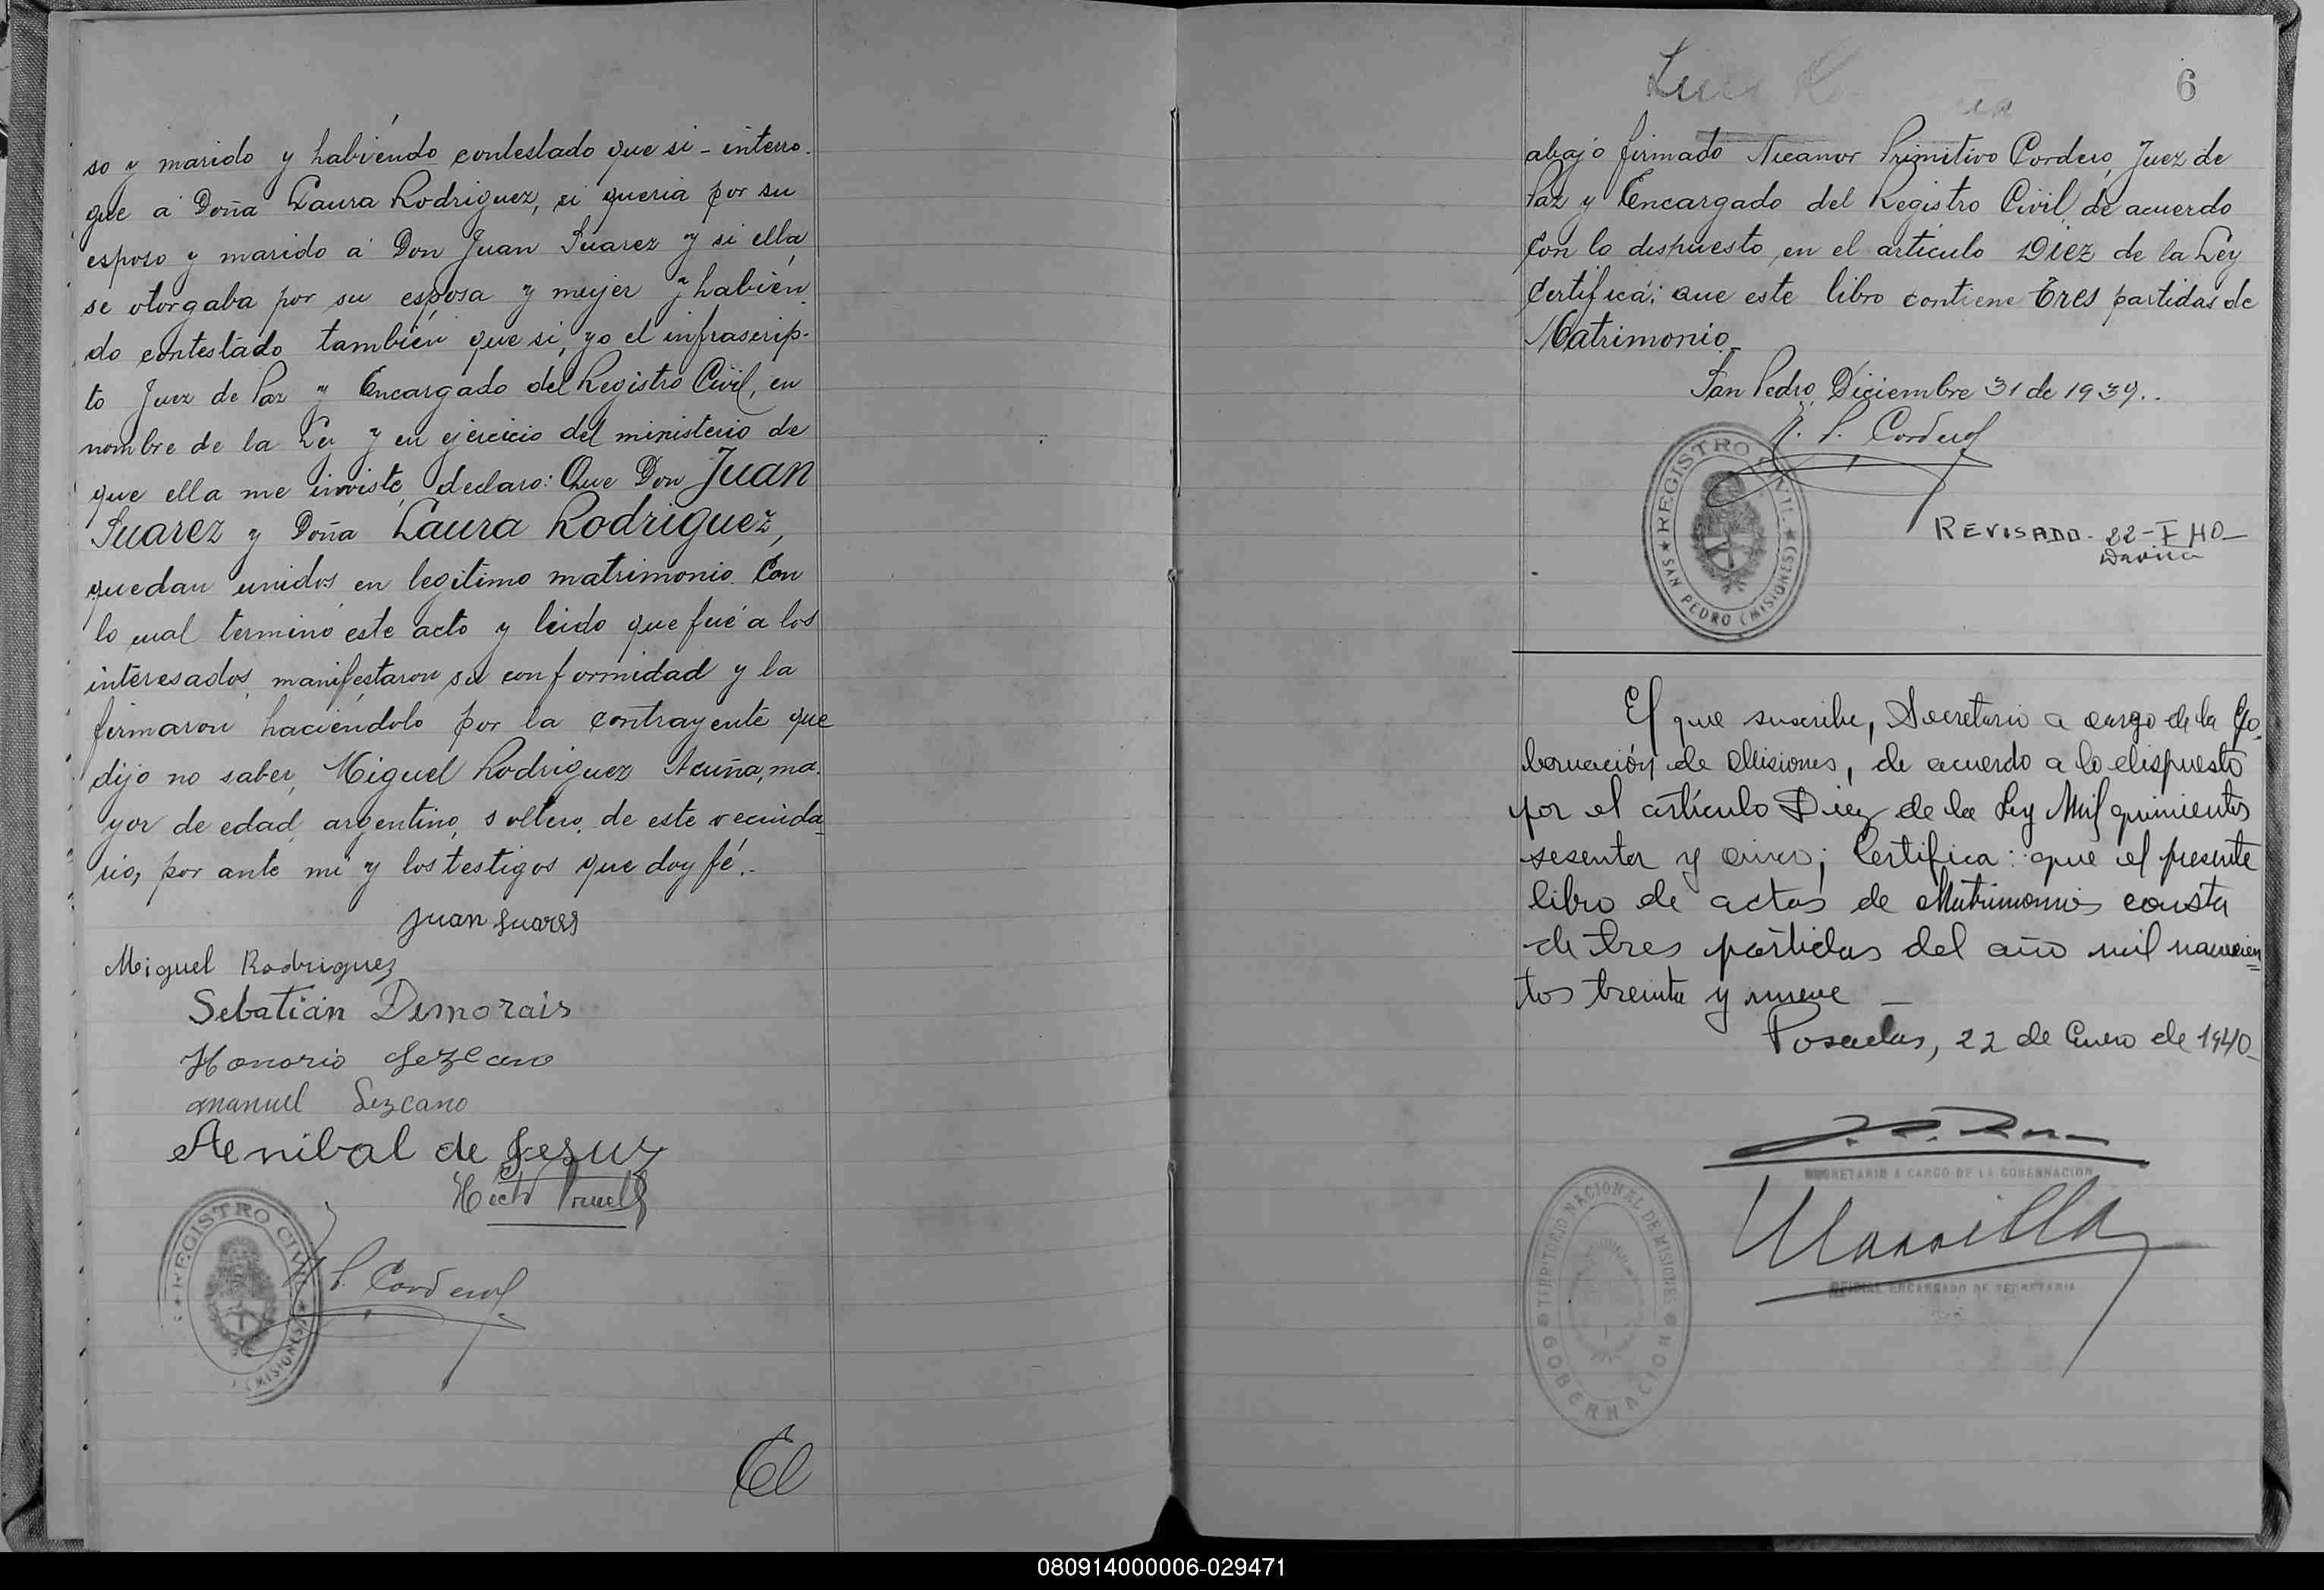 so y marido y habiendo contestado que si - interro-
gué a Doña Laura Rodriguez, si queria por su
esposo y marido a Don Juan Suarez y si ella
se otorgaba por su esposa y mujer y habien-
do contestado también que si, yo el infrascrip-
to Juez de Paz y Encargado del Registro Civil, en
nombre de la Ley y en ejercicio del ministerio de
que ella me inviste, declaro: Que Don Juan
Suarez y Doña Laura Rodriguez,
quedan unidos en legitimo matrimonio. Con
lo cual terminó este acto y leido que fué a los
interesados, manifestaron su conformidad y la
firmaron haciendolo por la contrayente que
dijo no saber, Miguel Rodriguez Acuña, ma-
yor de edad, argentino, soltero, de este vecinda-
rio, por ante mi y los testigos que doy fé.-
Juan Suares
Miguel Rodriguez
Sebatián Dimorais
Honorio Lezcano
Manuel Lezcano
Aenibal de Jesuz
Hector
REGISTRO CIVIL
(MISIONES)
N. P. Cordero
El
6
Luis
abajo firmado Nicanor Primitivo Cordero, Juez de
Paz y Encargado del Registro Civil, de acuerdo
con lo dispuesto en el artículo Diez de la Ley
Certifica: que este libro contiene tres partidas de
Matrimonio.-
San Pedro, Diciembre 31 de 1939..
N. P. Cordero
REGISTRO CIVIL
SAN PEDRO (MISIONES)
REVISADO - 22-I-40-
El que suscribe, Secretario a cargo de la Go-
bernación de Misiones, de acuerdo a lo dispuesto
por el artículo Diez de la Ley Mil quinientos
sesenta y cinco; Certifica: que el presente
libro de actas de Matrimonios consta
de tres partidas del año mil novecien=
tos treinta y nueve -
Posadas, 22 de Enero de 1940-
SECRETARIO A CARGO DE LA GOBERNACION
Mansilla
OFICIAL ENCARGADO DE SECRETARIA
TERRITORIO NACIONAL DE MISIONES
GOBERNACION
080914000006-029471